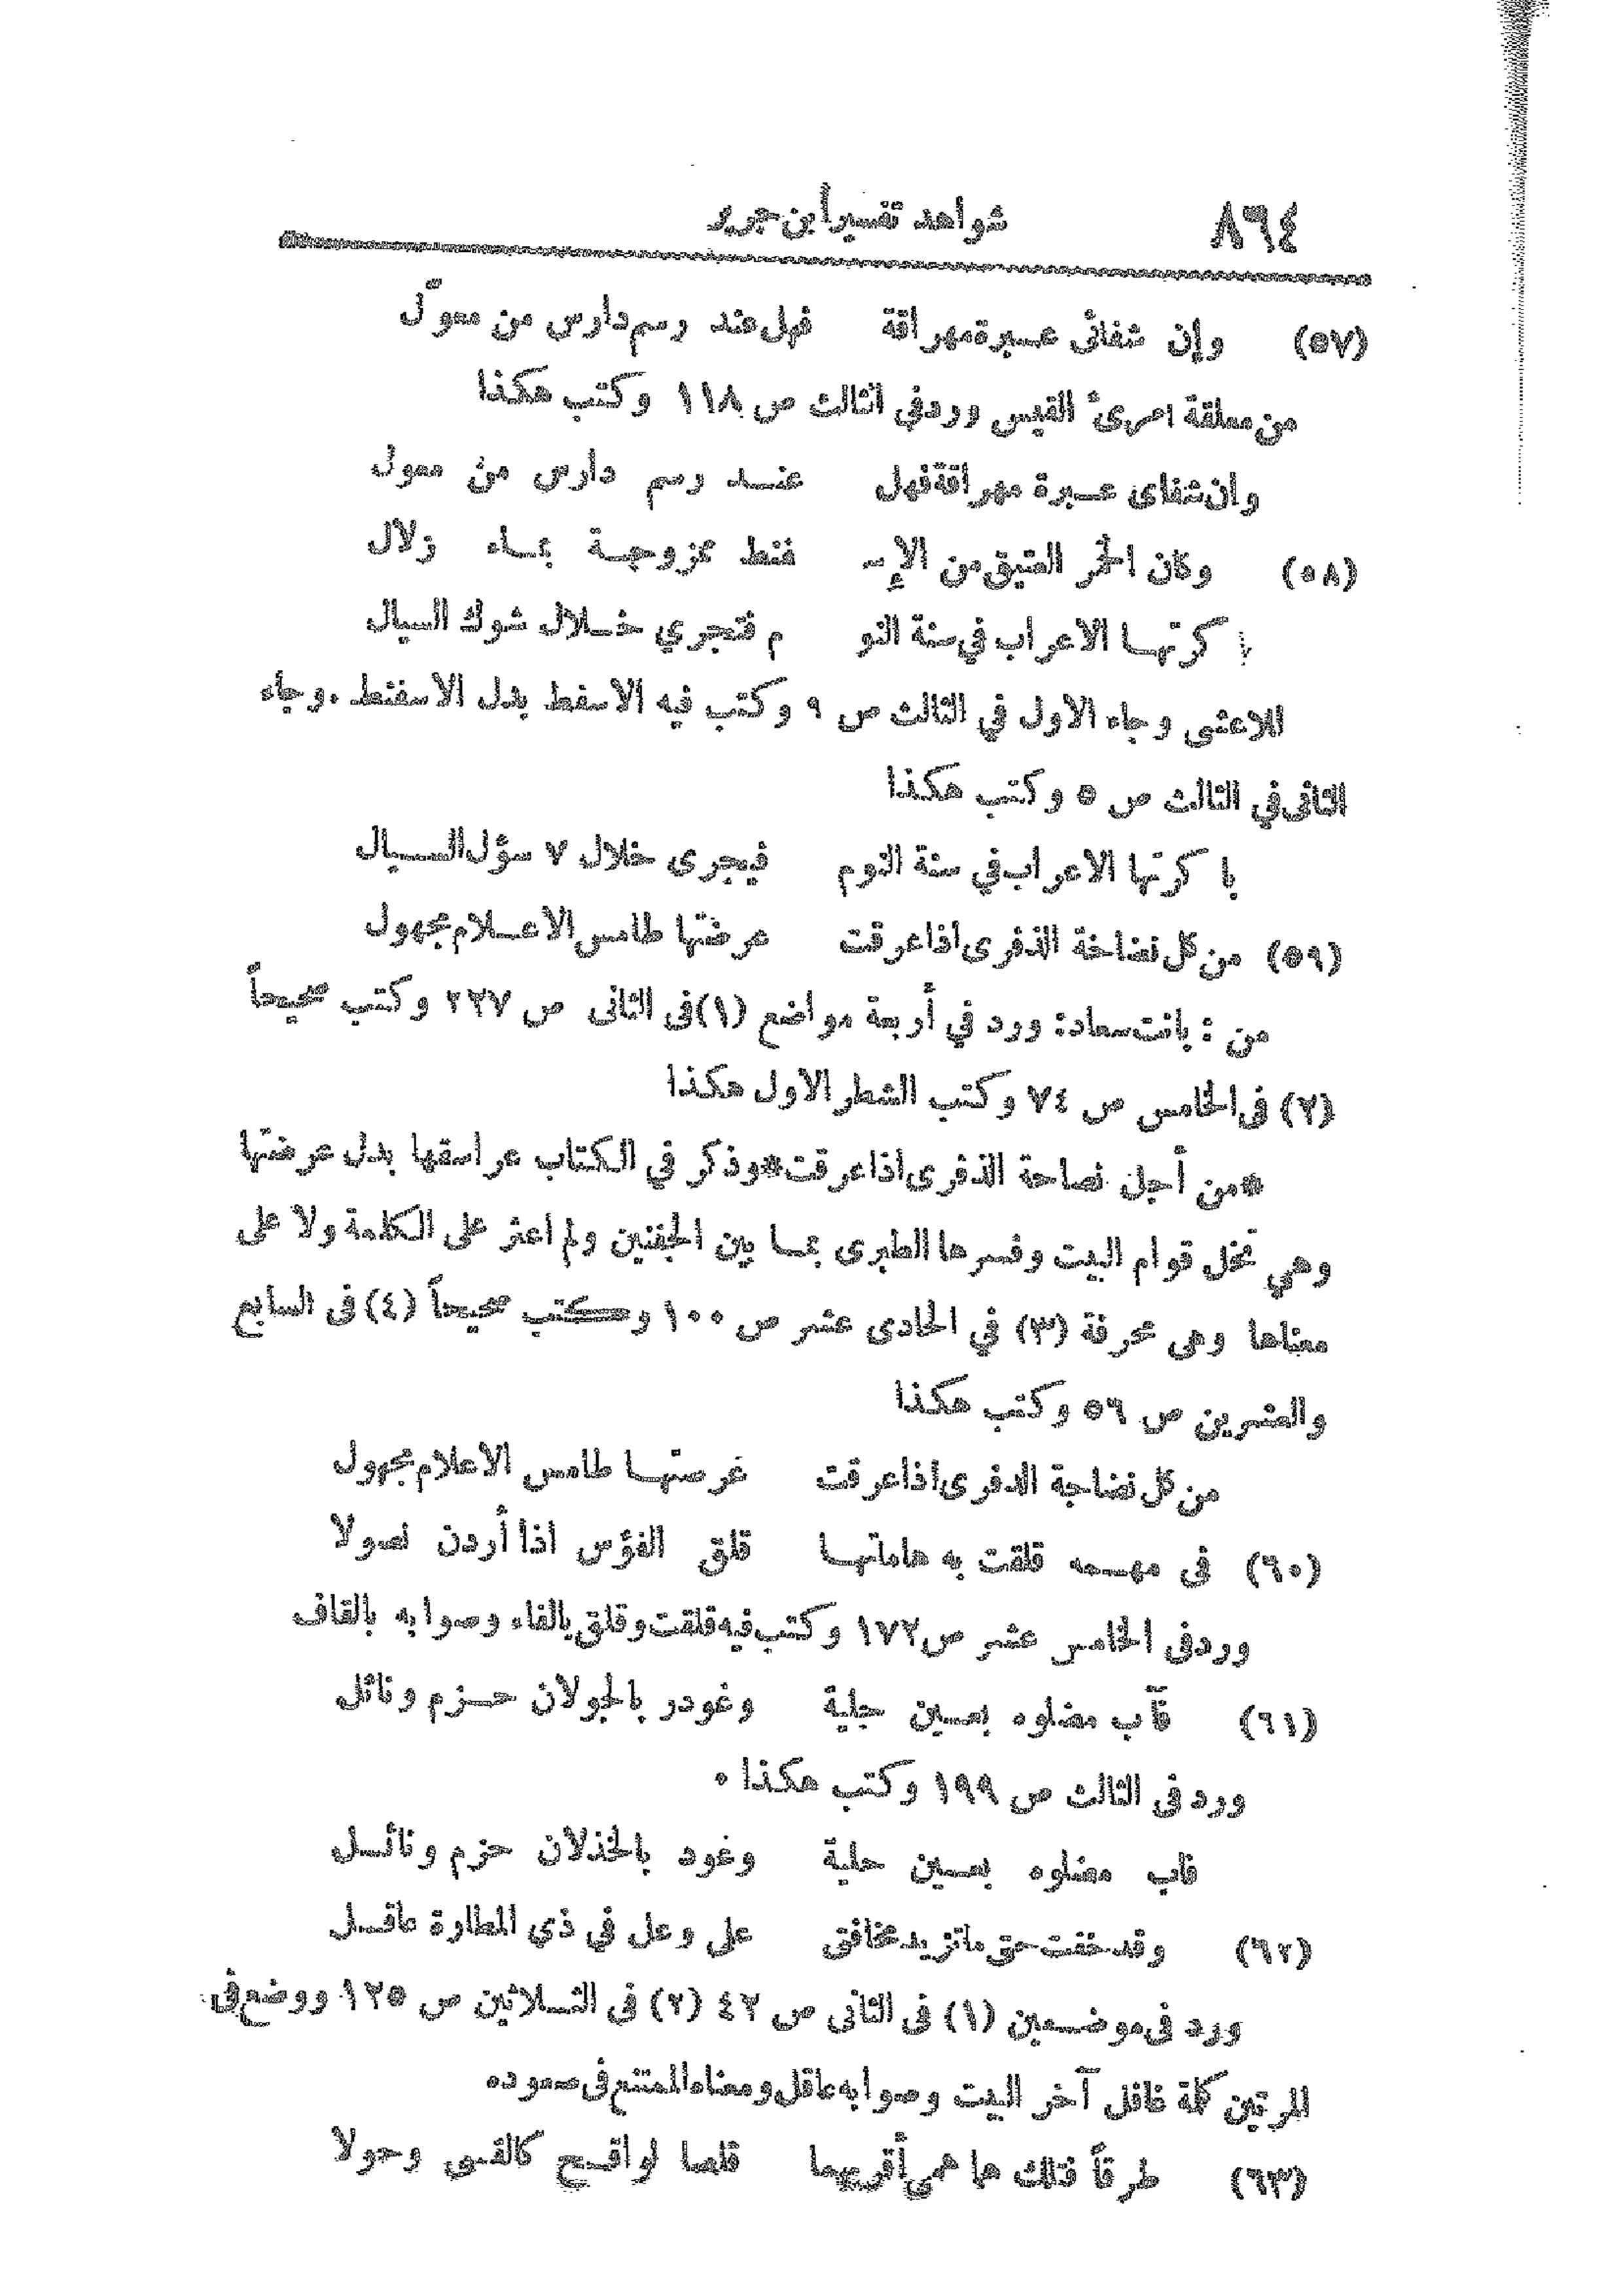 ٨٦٤ شواهد تفسير أبن جرير
(٥٧) وإن شفائى عبرة مهراقة فهل عند رسم دارس من معوّل
من معلقة امرئ القيس ورد في الثالث ص ١١٨ وكتب هكذا
وان شفاى عبرة مهراقة فهل عند رسم دارس من معول
(٥٨) وكان الخمر العتيق من الإســ فنط ممزوجة بماء زلال
باكرتها الاعراب في سنة النو م فتجري خلال شوك السيال
للاعشى وجاء الاول في الثالث ص ٩ وكتب فيه الاسفط بدل الاسفنط . وجاء
الثانى في الثالث ص ٥ وكتب هكذا
باكرتها الاعراب في سنة النوم فيجرى خلال ٧ سؤل السيال
(٥٩) من كل نضاخة الذفرى اذا عرقت عرضتها طامس الاعلام مجهول
من : بانت سعاد: ورد في أربعة مواضع (١) فى الثانى ص ٢٢٧ وكتب صحيحاً
(٢) فى الخامس ص ٧٤ وكتب الشطر الاول هكذا
*من أجل نصاحة الذفرى اذا عرقت* وذكر في الكتاب عراسقها بدل عرضتها
وهي تخل قوام البيت وفسرها الطبرى بما بين الجفنين ولم اعثر على الكلمة ولا على
معناها وهى محرفة (٣) في الحادى عشر ص ١٠٠ وكتب صحيحاً (٤) فى السابع
والعشرين ص ٥٦ وكتب هكذا
من كل نضاجة الدفرى اذا عرقت غرصتها طامس الاعلام مجهول
(٦٠) فى مهمه قلقت به هاماتها قلق الفؤس اذا أردن نصولا
ورد فى الخامس عشر ص ١٧٢ وكتب فيه قلقت وقلق بالفاء وصوابه بالقاف
(٦١) فآب مضلوه بعين جلية وغودر بالجولان حزم ونائل
ورد فى الثالث ص ١٩٩ وكتب هكذا .
فاب مضلوه بعين حلية وغود بالخذلان حزم ونائل
(٦٢) وقد خفت حتى ما تزيد مخافتى على وعل في ذي المطارة عاقل
ورد فى موضعين (١) فى الثانى ص ٤٢ (٢) فى الثلاثين ص ١٢٥ ووضع فى
المرتين كلمة غافل آخر البيت وصوابه عاقل ومعناه الممتنع فى صعوده
(٦٣) طرقاً فتلك هما همى أقريهما قلصا لواقح كالقسى وحولا